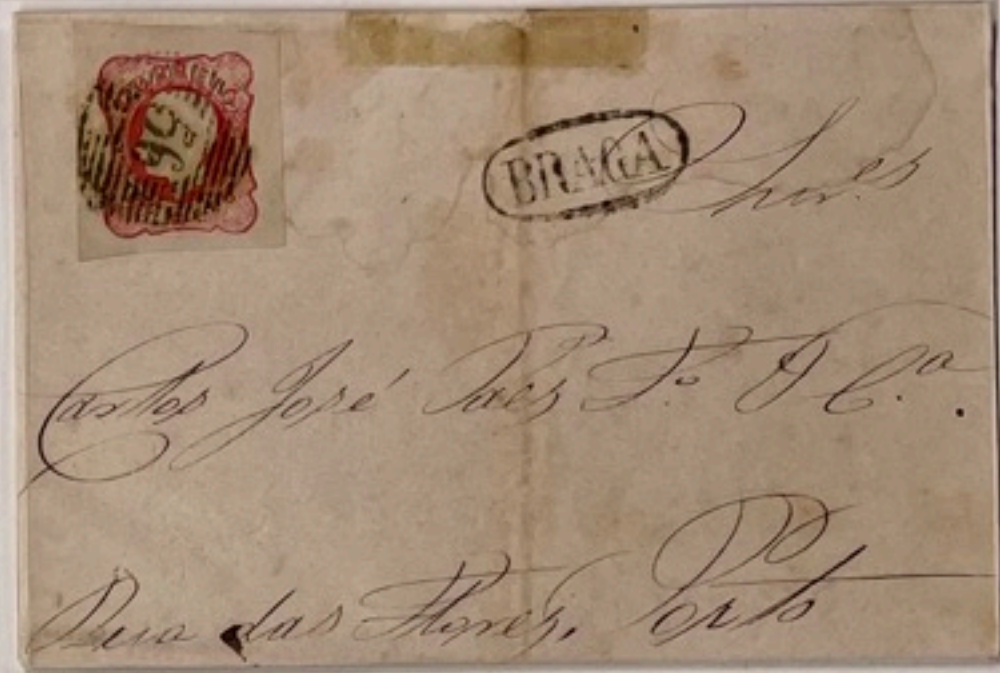 BRAGA
Snres
Carlos José Paes F.º & C.ª
Rua das Flores, Porto